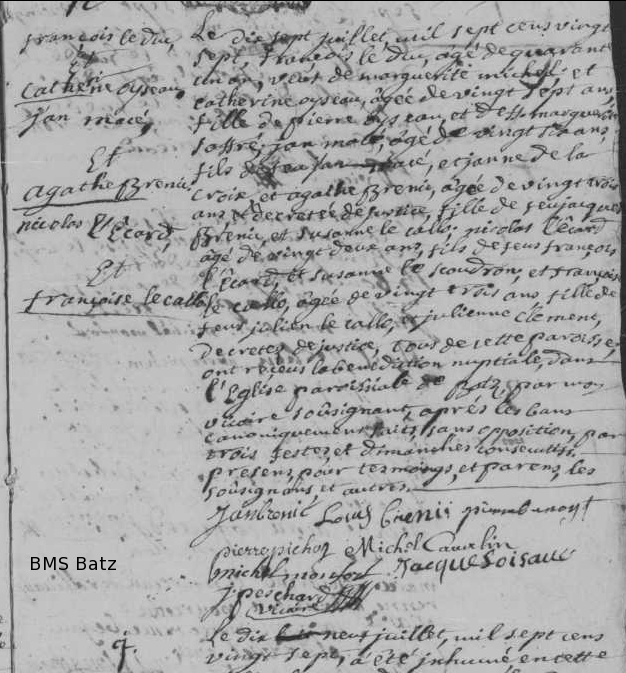 françois le duc,
Et
Catherine oyseau,
jan macé,
Et
Agathe Brenii
nicolas l'Ecard,
Et
françoise le callo
Le dix sept juillet, mil sept cens vingt
sept, françois le duc, âgé de quarant
un an, veuf de marguerite michel et
catherine oyseau, âgée de vingt sept ans,
fille de pierre oyseau, et de marguerite
Joffre, jan macé, âgé de vingt six ans,
fils de feu jan macé, et janne de la
croix, et agathe Brenii, âgée de vingt trois
ans, decretée de justice, fille de feu jacques
Brenii, et susanne le callo; nicolas l'Ecard
âgé de vingt deux ans, fils de feus françois
l'Ecard, et susanne le scaudron, et françoise
le callo, âgée de vingt trois ans, fille de
feus julien le callo, et julienne Clement,
Decretez de justice, tous de cette paroisse,
ont receus la benediction nuptiale, dans
l'Eglise paroissiale de Batz, par moy
vicaire soûsignant, aprés les bans
canoniquement faits, sans opposition, par
trois festes et dimanches consecutifs.
presens, pour tesmoings, et parens, les
soûsignans, et autres.
Jan brenii Louis brenii pierre benoist
pierre pichot Michel Cauvelin
michel monfort Jacque Loisaue
J perchard
vicaire
Le dix neuf juillet, mil sept cens
vingt sept, a été inhumé en cette
BMS Batz